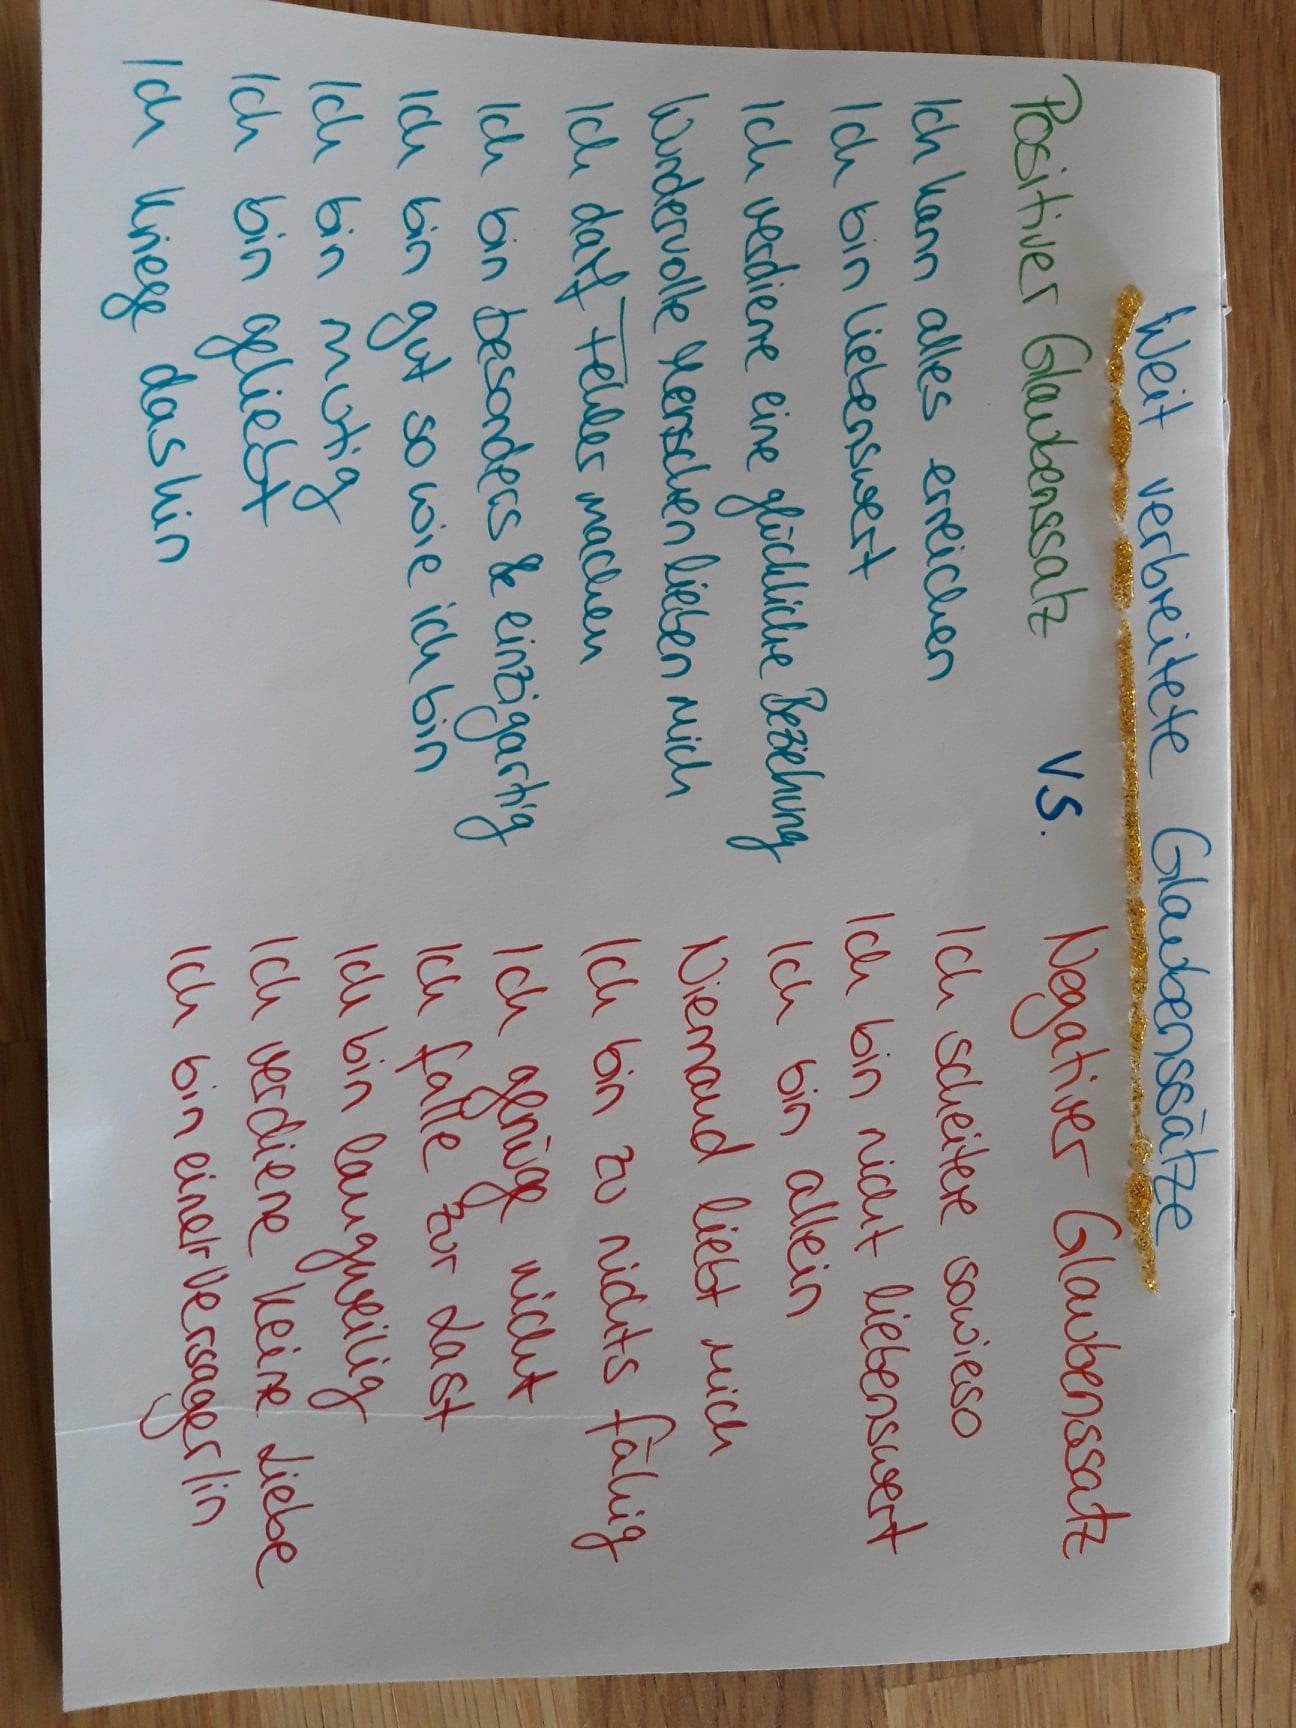 Weit verbreitete Glaubenssätze
Positiver Glaubenssatz vs. Negativer Glaubenssatz
Ich kann alles erreichen
Ich bin liebenswert
Ich verdiene eine glückliche Beziehung
Wundervolle Menschen lieben mich
Ich darf Fehler machen
Ich bin besonders & einzigartig
Ich bin gut so wie ich bin
Ich bin mutig
Ich bin geliebt
Ich kriege das hin
Ich scheitere sowieso
Ich bin nicht liebenswert
Ich bin allein
Niemand liebt mich
Ich bin zu nichts fähig
Ich genüge nicht
Ich falle zur Last
Ich bin langweilig
Ich verdiene keine Liebe
Ich bin eine/r Versager/in